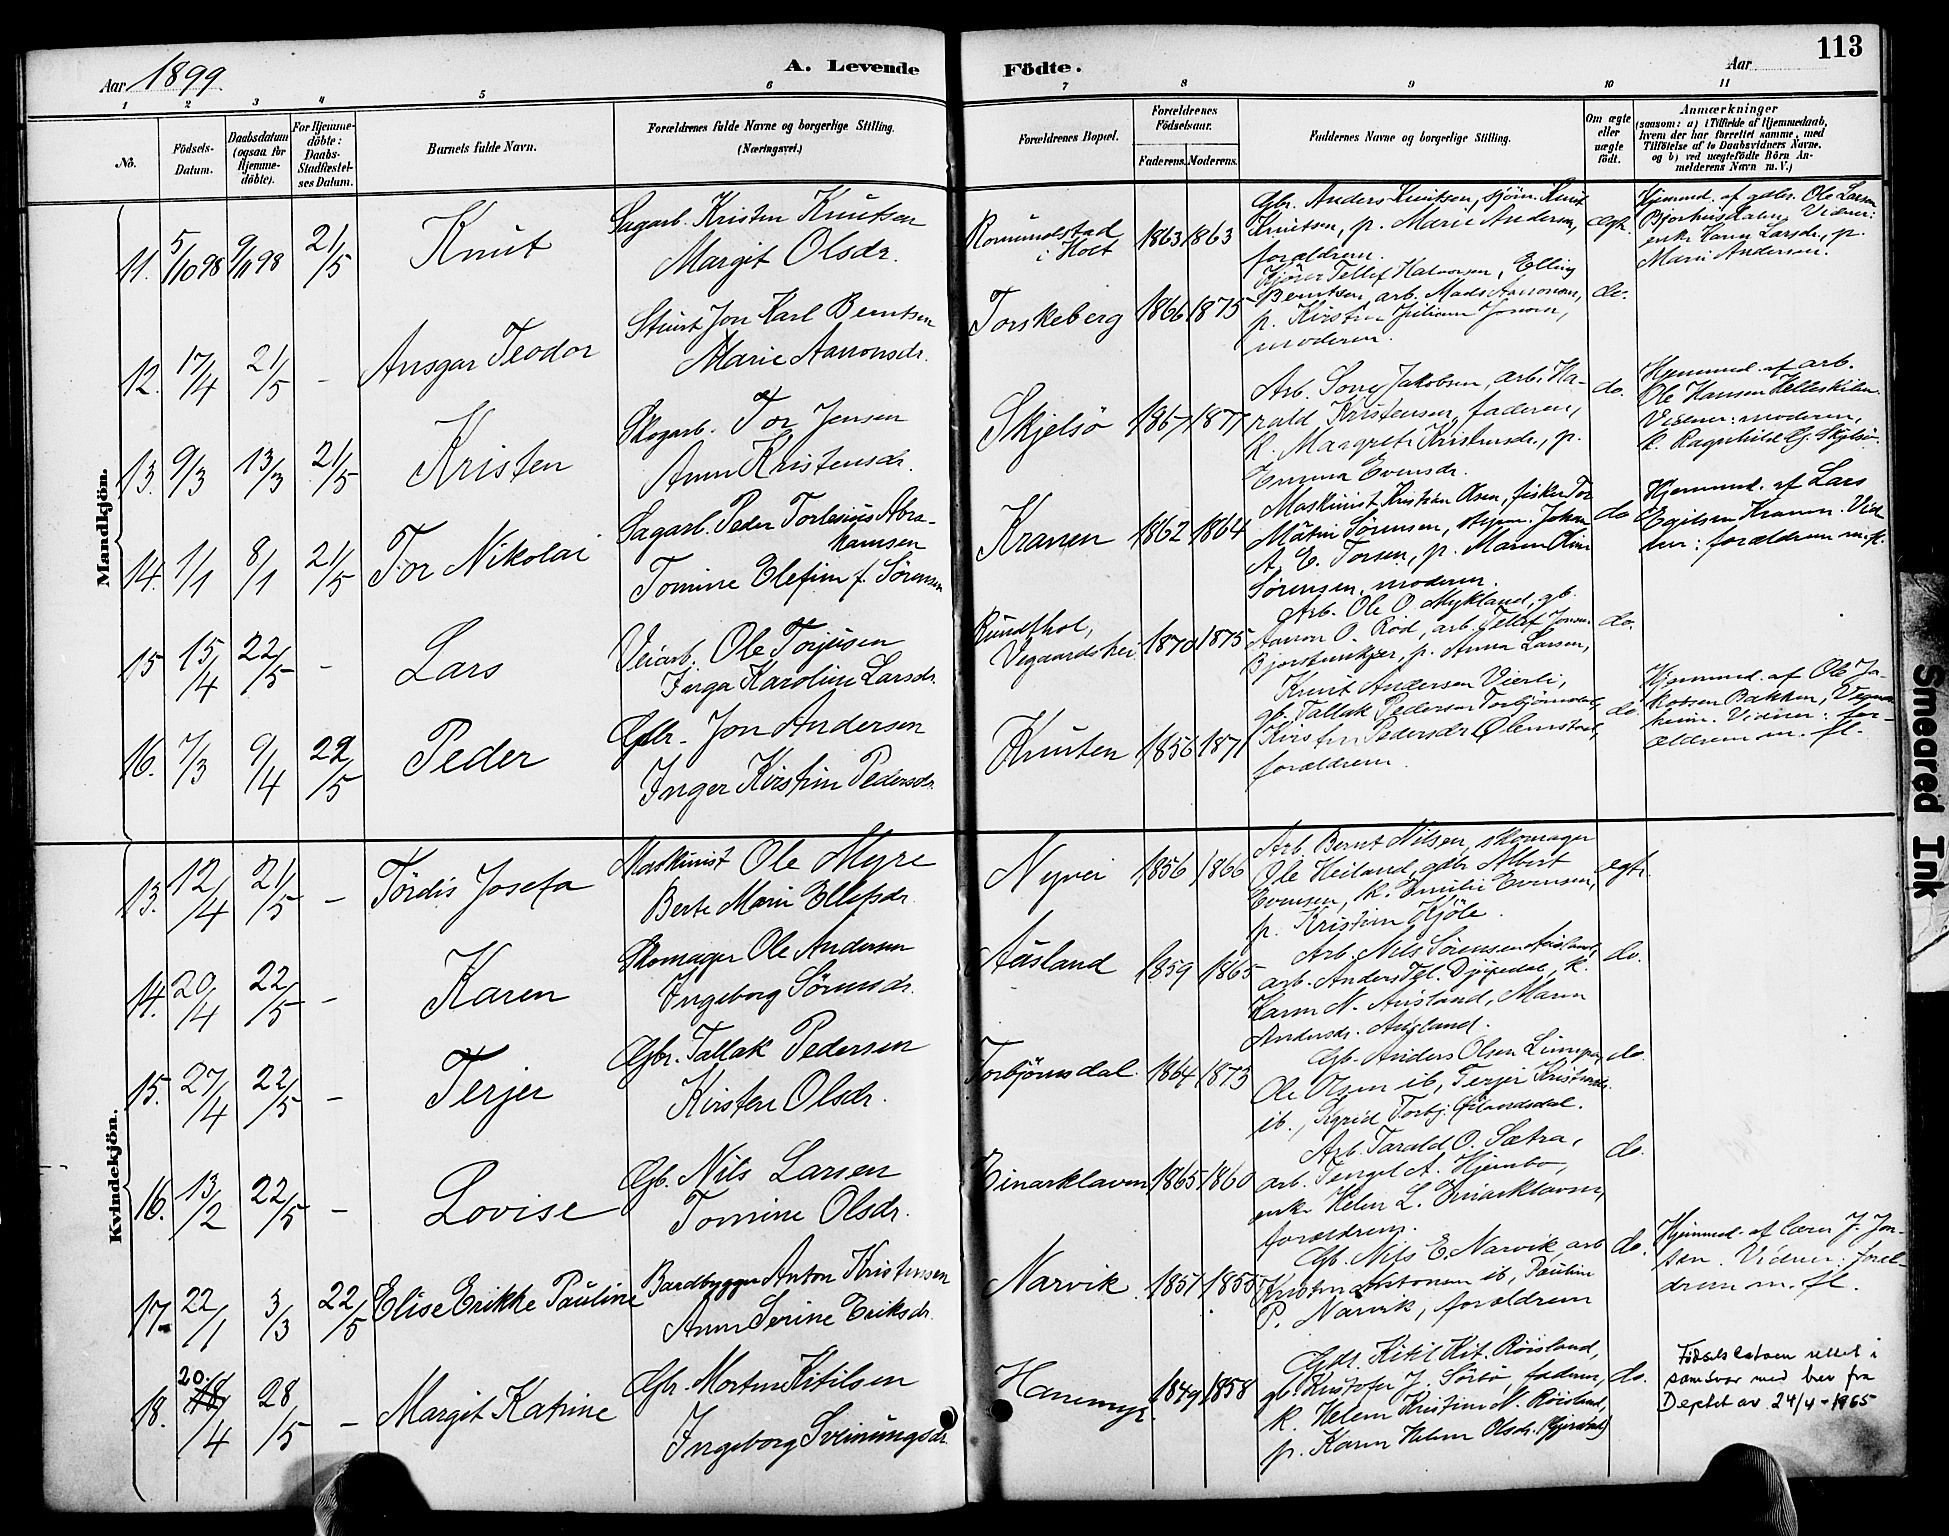 Aar 1899
A. Levende Födte.
Aar
113
1 2 3 4 5 6 7 8 9 10 11
No.
Födsels-Datum.
Daabsdatum (ogsaa for Hjemme-döbte).
For Hjemme-döbte: Daabs-Stadfæstel-ses Datum.
Barnets fulde Navn.
Forældrenes fulde Navne og borgerlige Stilling.
(Næringsvei.)
Forældrenes Bopæl.
Forældrenes Födselsaar.
Faderens. Moderens.
Faddernes Navne og borgerlige Stilling.
Om ægte eller uægte födt.
Anmærkninger
(saasom: a) i Tilfælde af Hjemmedaab, hvem der har forrettet samme, med Tilföielse af to Daabsvidners Navne, og b) ved uægtefödte Börn An-melderens Navn m. V.)
Mandkjön.
11. 5/10 98 9/11 98 21/5 Knut
Sagarb. Kristen Knutsen
Margit Olsdr.
Romundstad i Holt 1863 1863
Gbr. Anders Knutsen, Knut
Knutsen, p. Marie Andersen,
forældrene.
egte.
Hjemmed. af gdbr. Ole Larsen
Vidner:
enke Karen Larsdr., p.
Marie Andersen.
12. 17/4 21/5 - Ansgar Teodor
Stuert Jon Karl Berntsen
Marie Aanonsdr.
Torskeberg 1866 1875
Tellef Halvorsen, Elling
Berntsen, arb. Mads Aanonsen,
p. Kirstine Juliane Jonsen,
moderen.
do.
13. 9/3 13/3 21/5 Kristen
Skogarb. Tor Jensen
Anne Kristensdr.
Skjelsö 1867 1877
Arb. Jakobsen, arb. Ha-
rald Kristensen, faderen,
k. Margrete Kristensdr., p.
Emma Evensdr.
do.
Hjemmed. af arb.
Ole Hansen
Vidner: moderen,
k. Ragnhild G. Skjelsö.
14. 1/1 8/1 21/5 Tor Nikolai
Sagarb. Peder Torlesius Abra-
hamsen
Tomine Elefine f. Sörensen
Kranen 1862 1864
Maskinist Kristian Olsen, fisker Tor
Sörensen, Johan
A. E. Torsen, p. Maren Oline
Sörensen, moderen.
do
Hjemmed. af Lars
Egilsen Kranen. Vid
ner: forældrene m. fl.
15 15/4 22/5 - Lars
Veiarb. Ole Torjussen
Inga Karoline Larsdr.
Vegaardshei 1870 1875
Arb. Ole O. Mykland, gb.
Aanon O. Röd, arb. Tellef Jonsen
p. Anna Larsen,
do.
16. 7/3 9/4 22/5 Peder
Gbr. Jon Andersen
Inger Kirstine Pedersdr.
Knuten 1856 1871
Knut Andersen Vierli,
gb. Tallak Pedersen Torbjörnsdal,
Kirsten Pedersdr Ölemstad,
forældrene.
do.
Hjemmed. af Ole Ja-
kobsen Bakken, Vegaards-
heien. Vidner: for-
ældrene m. fl.
Kvindekjön.
13. 12/4 21/5 - Tördis Josefa
Maskinist Ole Myre
Berte Marie Ellefsdr.
Nyvei 1856 1866
Arb. Bernt Nilsen, skomager
Ole Heiland, gdbr. Albert
Evensen, k. Emilie Evensen,
p. Kristine Kjöle.
egte.
14. 20/4 22/5 - Karen
Skomager Ole Andersen
Ingeborg Sörensdr.
Aasland 1859 1865
Arb. Nils Sörensen Aasland,
arb. Anders Djupedal, k.
Karen N. Aasland, Maren
Andersdr. Aasland.
do.
15. 27/4 22/5 - Terjer
Gbr. Tallak Pedersen
Kirsten Olsdr.
Torbjörnsdal. 1864 1873
Gb. Anders Olsen
Ole Olsen ib, Terjer Kristensdr.
ib., Sigrid Torbj.
do.
16. 13/2 22/5 - Lovise
Gb. Nils Larsen
Tomine Olsdr.
Einarklaven 1865 1860
Arb. Tarald O. Sætra,
arb. Tengel A. Hjembo,
enke Helene L. Einarklaven,
forældrene.
do.
17. 22/1 3/3 22/5 Elise Erikke Pauline
Baadbygger Anton Kristensen
Anne Serine Eriksdr.
Narvik 1857 1855
Gb. Nils E. Narvik, arb
Kristen Antonsen ib, Pauline
P. Narvik, forældrene
do.
Hjemmed. af lærer J. Jon-
sen. Vidner: foræl-
drene m. fl.
18. 20. 18/4 28/5 - Margit Katrine
Gbr. Morten Kitilsen
Ingeborg Sveinungsdr.
Hanemyr. 1849 1858
Gbr. Kitil Kit. Röisland,
gb. Kristofer J. Sörbö, faderen,
k. Helene Kristine N. Röisland,
p. Karen Helene Olsdr.
do.
Födselsdatoen rettet i
samsvar med brev fra
Dep'tet av 24/4-1965
Smeared Ink